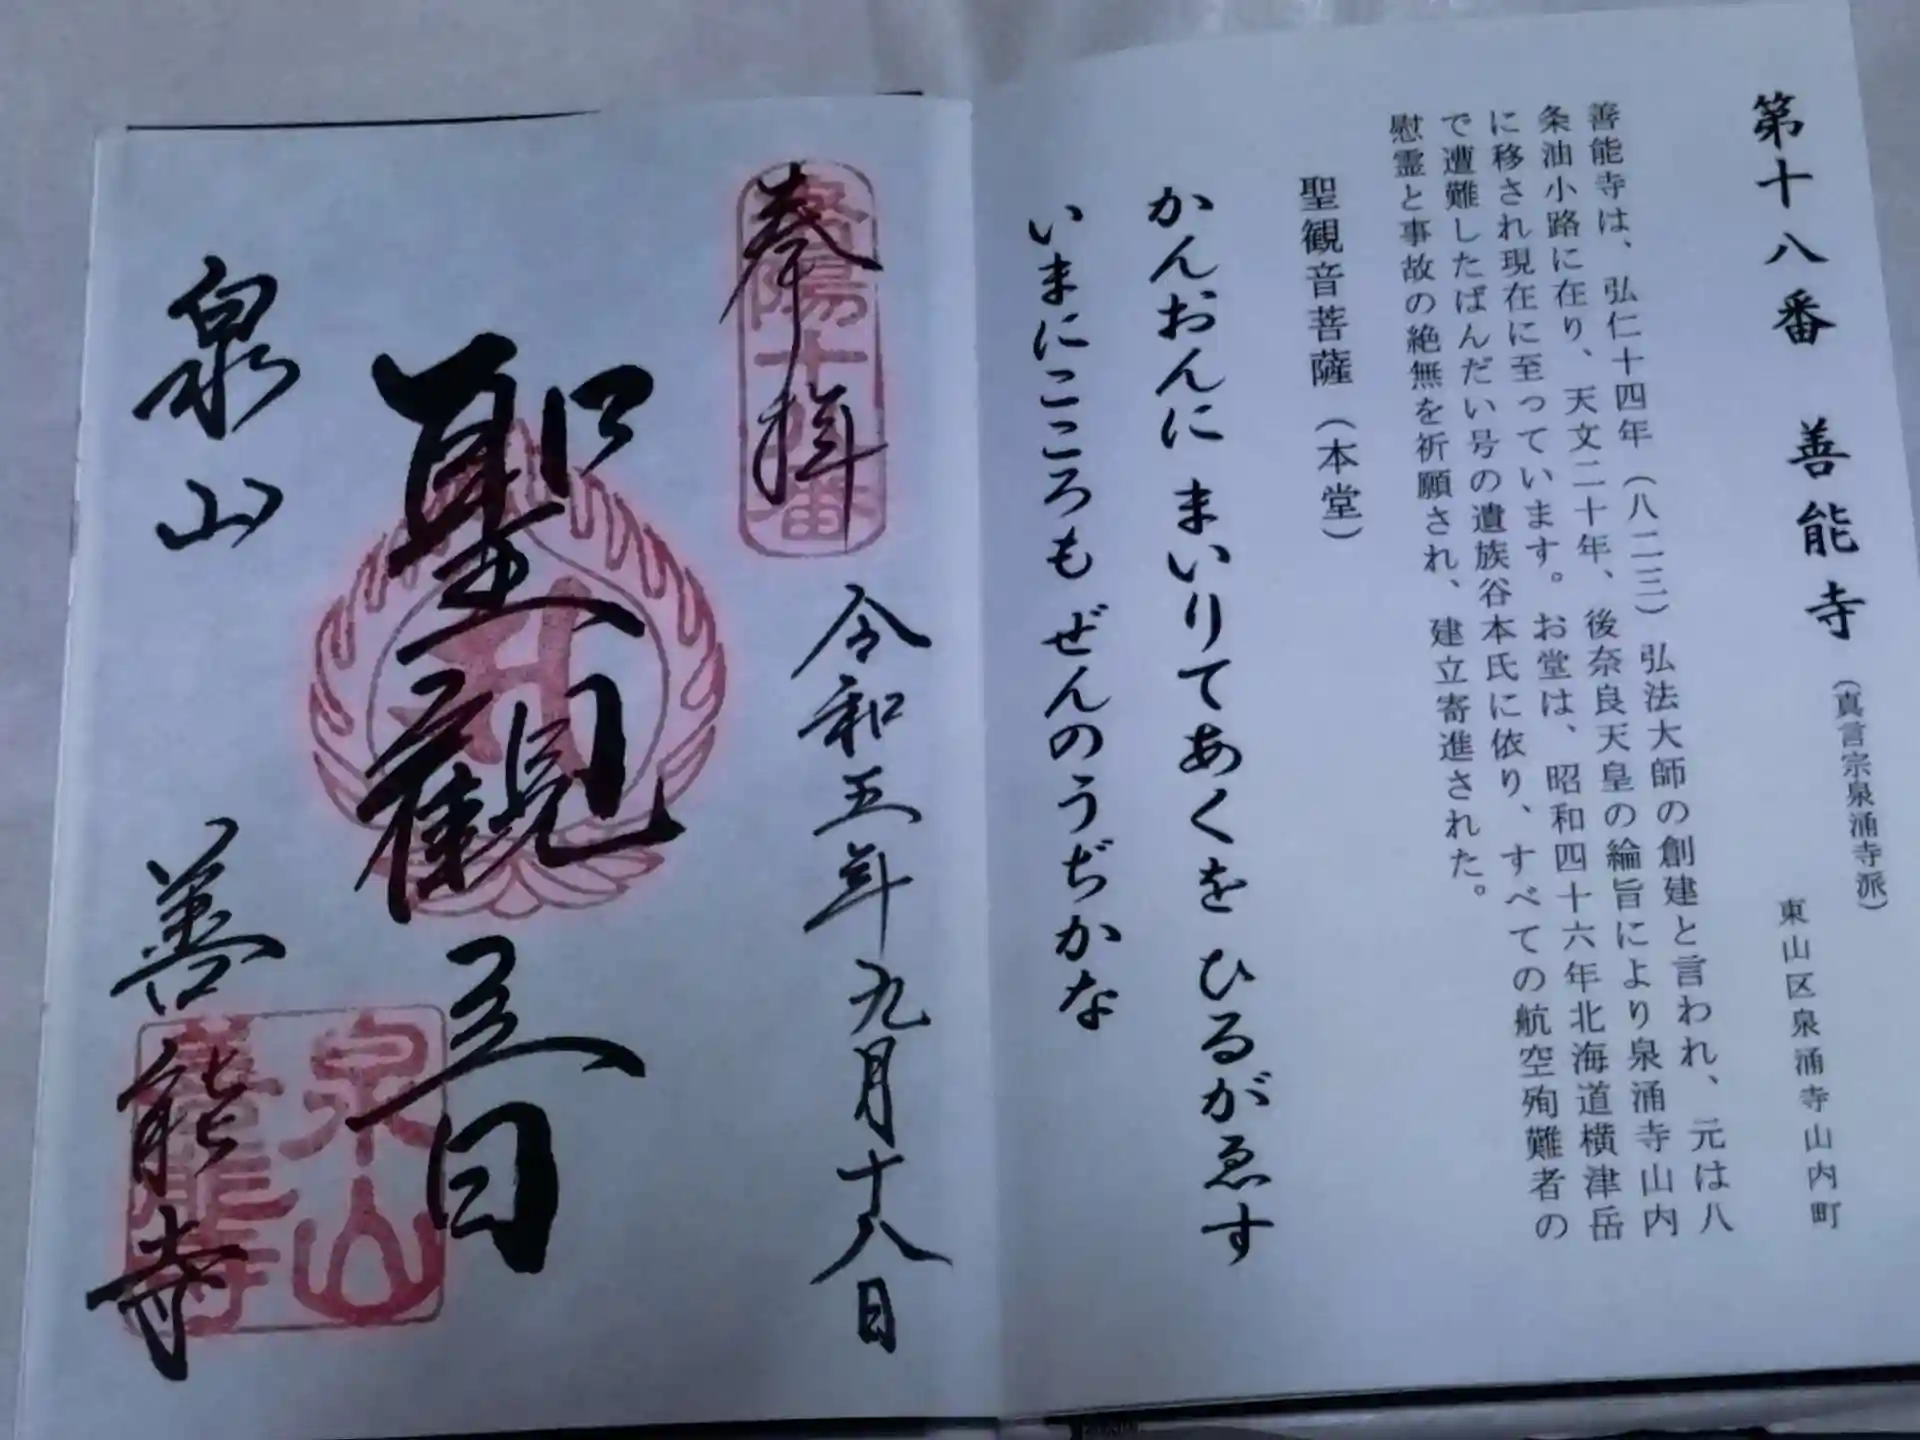 第十八番　善能寺（真言宗泉涌寺派）
東山区泉涌寺山内町
善能寺は、弘仁十四年（八二三）弘法大師の創建と言われ、元は八
条油小路に在り、天文二十年、後奈良天皇の綸旨により泉涌寺山内
に移され現在に至っています。お堂は、昭和四十六年北海道横津岳
で遭難したばんだい号の遺族谷本氏に依り、すべての航空殉難者の
慰霊と事故の絶無を祈願され、建立寄進された。
聖観音菩薩（本堂）
かんおんに まいりてあくを ひるがゑす
いまにこころも ぜんのうぢかな
奉拝
洛陽十八番
令和五年九月十八日
聖観音
泉山
善能寺
泉山
善能寺